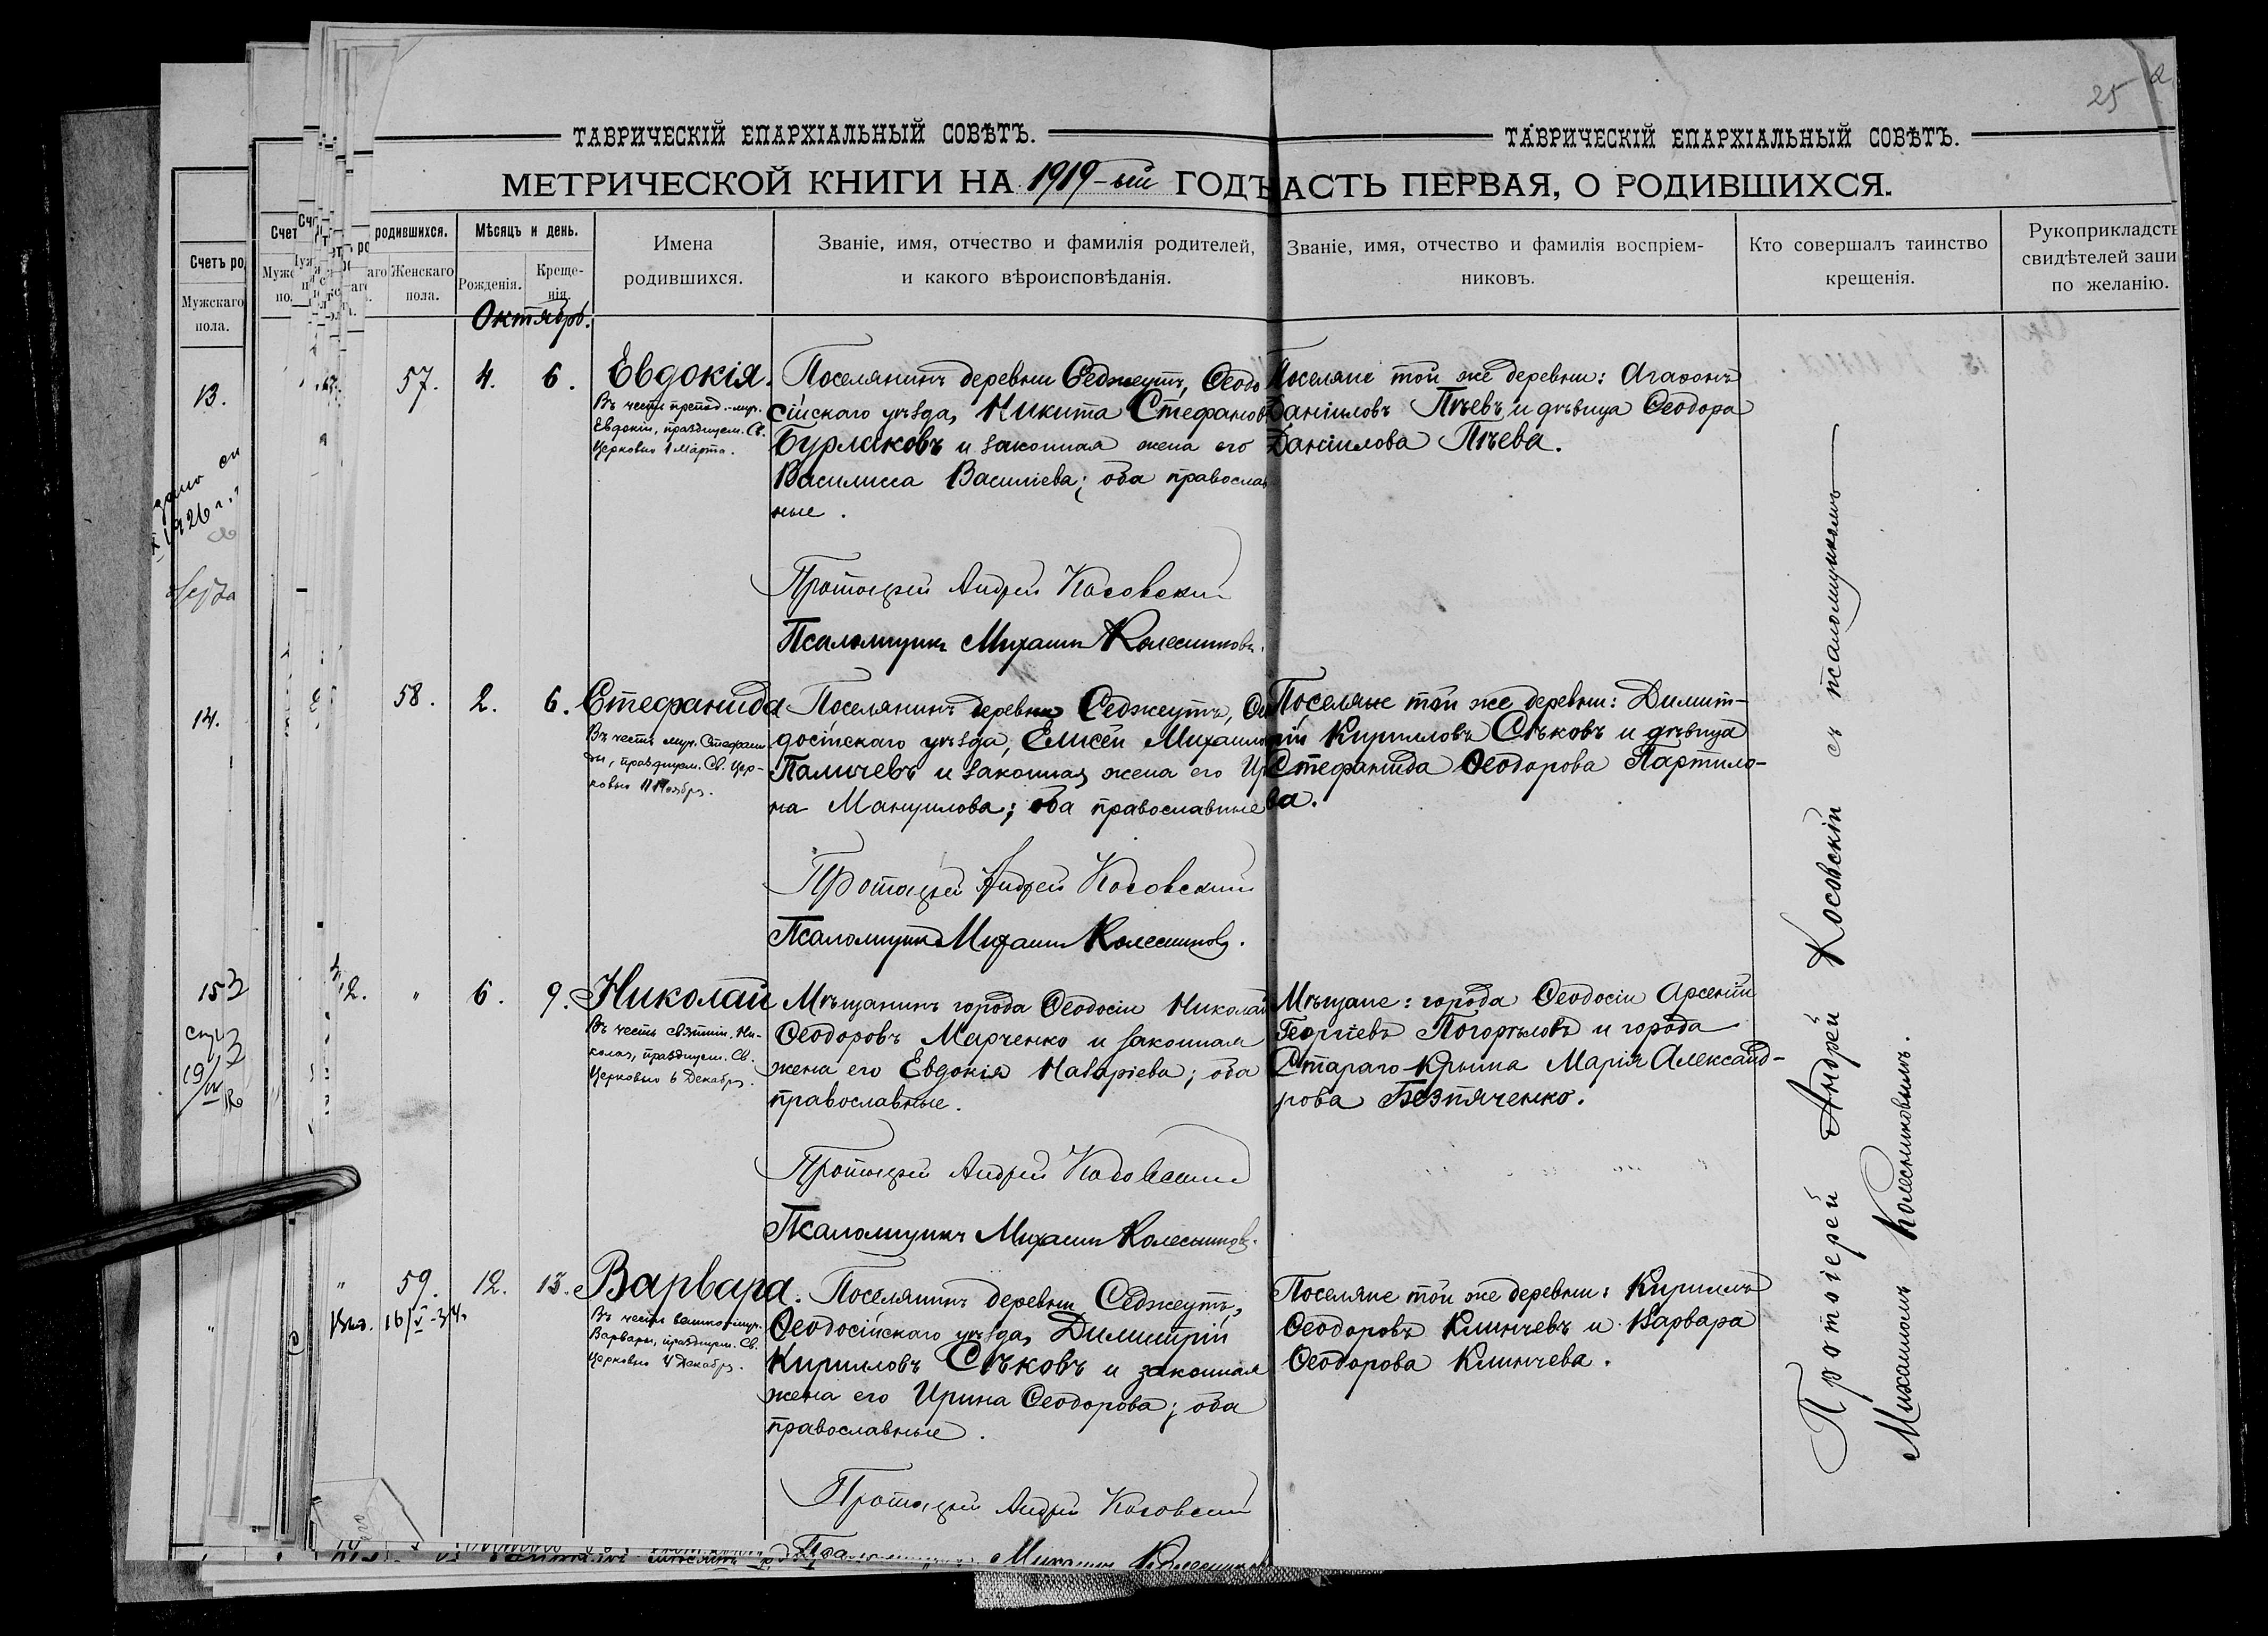 25
ТАВРИЧЕСКІЙ ЕПАРХІАЛЬНЫЙ СОВѢТЪ.
ТАВРИЧЕСКІЙ ЕПАРХІАЛЬНЫЙ СОВѢТЪ.
МЕТРИЧЕСКОЙ КНИГИ НА 1919-ый ГОДЪ
АСТЬ ПЕРВАЯ, О РОДИВШИХСЯ.
родившихся.
Женскаго
пола.
Мѣсяцъ и день.
Рожденія.
Креще-
нія.
Имена
родившихся.
Званіе, имя, отчество и фамилія родителей,
и какого вѣроисповѣданія.
Званіе, имя, отчество и фамилія воспріем-
никовъ.
Кто совершалъ таинство
крещенія.
Рукоприкладств
свидѣтелей запи
по желанію.
Счетъ ро
Мужскаго
пола.
Счет
Октябрь.
13.
57.
4.
6.
Евдокія.
Въ честь препод.-муч.
Евдокіи, празднуем. Св.
Церковью 1 Марта.
Поселянинъ деревни Седжеутъ, Ѳеодо
сійскаго уѣзда, Никита Стефановъ
Бурлаковъ и законная жена его
Василисса Василіева; оба православ
ные.
Протоіерей Андрей Косовскій
Псаломщикъ Михаилъ Колесниковъ.
Поселяне той же деревни: Агаѳонъ
Даніиловъ Пѣевъ и дѣвица Ѳеодора
Даніилова Пѣева.
1926 г.
14.
58.
2.
6.
Стефанида
Въ честь муч. Стефани
ды, празднуем. Св. Цер-
ковью 11 Ноября.
Поселянинъ деревни Седжеутъ, Ѳео
досійскаго уѣзда, Елисей Михаило
Паличевъ и законная жена его Ир
на Мануилова; оба православные
Протоіерей Андрей Косовскій
Псаломщикъ Михаилъ Колесниковъ.
Поселяне той же деревни: Димит-
рій Кирилловъ Сѣковъ и дѣвица
Стефанида Ѳеодорова Партило-
ва.
15
12.
"
6.
9.
Николай
Въ честь святит. Ни-
колая, празднуем. Св.
Церковью 6 Декабря.
Мѣщанинъ города Ѳеодосіи Николай
Ѳеодоровъ Марченко и законная
жена его Евдокія Назаріева; оба
православные.
Протоіерей Андрей Косовскій
Псаломщикъ Михаилъ Колесниковъ.
Мѣщане: города Ѳеодосіи Арсеній
Георгіевъ Погорѣловъ и города
Стараго-Крыма Марія Александ-
рова Безпяченко.
"
59.
12.
13.
16/V-34.
Варвара.
Въ честь великомуч.
Варвары, празднуем. Св.
Церковью 4 Декабря.
Поселянинъ деревни Седжеутъ,
Ѳеодосійскаго уѣзда, Димитрій
Кирилловъ Сѣковъ и законная
жена его Ирина Ѳеодорова; оба
православные.
Протоіерей Андрей Косовскій
Михаилъ Колесниковъ
Поселяне той же деревни: Кириллъ
Ѳеодоровъ Клинчевъ и Варвара
Ѳеодорова Клинчева.
Протоіерей Андрей Косовскій съ псаломщикомъ
Михаиломъ Колесниковымъ.